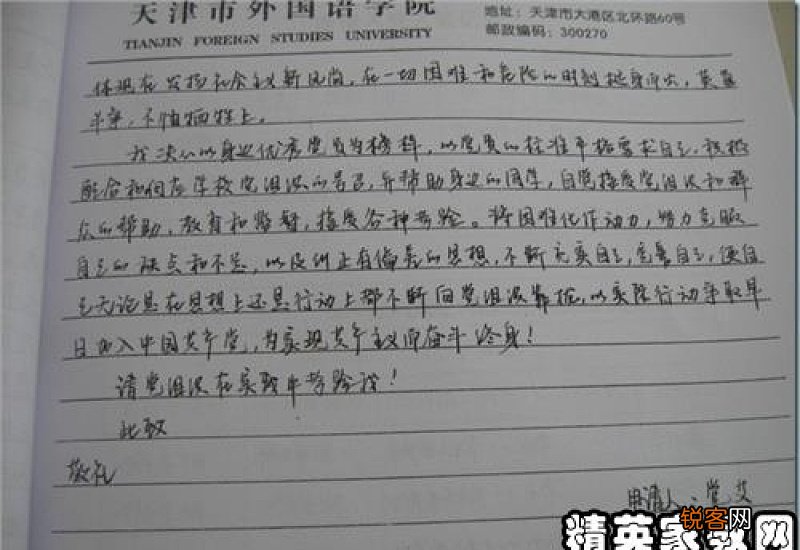 天津市外国语学院
TIANJIN FOREIGN STUDIES UNIVERSITY
地址：天津市大港区北环路60号
邮政编码：300270
体现在发扬社会主义新风尚，在一切困难和危险的时刻挺身而出，英勇
斗争，不怕牺牲上。
我决心以身边优秀党员为榜样，以党员的标准严格要求自己，积极
配合和响应学校党组织的号召，并帮助身边的同学，自觉接受党组织和群
众的帮助，教育和监督，接受各种考验。将困难化作动力，努力克服
自己的缺点和不足，以及纠正有偏差的思想，不断充实自己，完善自己，使自
己无论是在思想上还是行动上都不断向党组织靠拢，以实际行动争取早
日加入中国共产党，为实现共产主义而奋斗终身！
请党组织在实践中考验我！
此致
敬礼
申请人：
锐客网
精英家教网